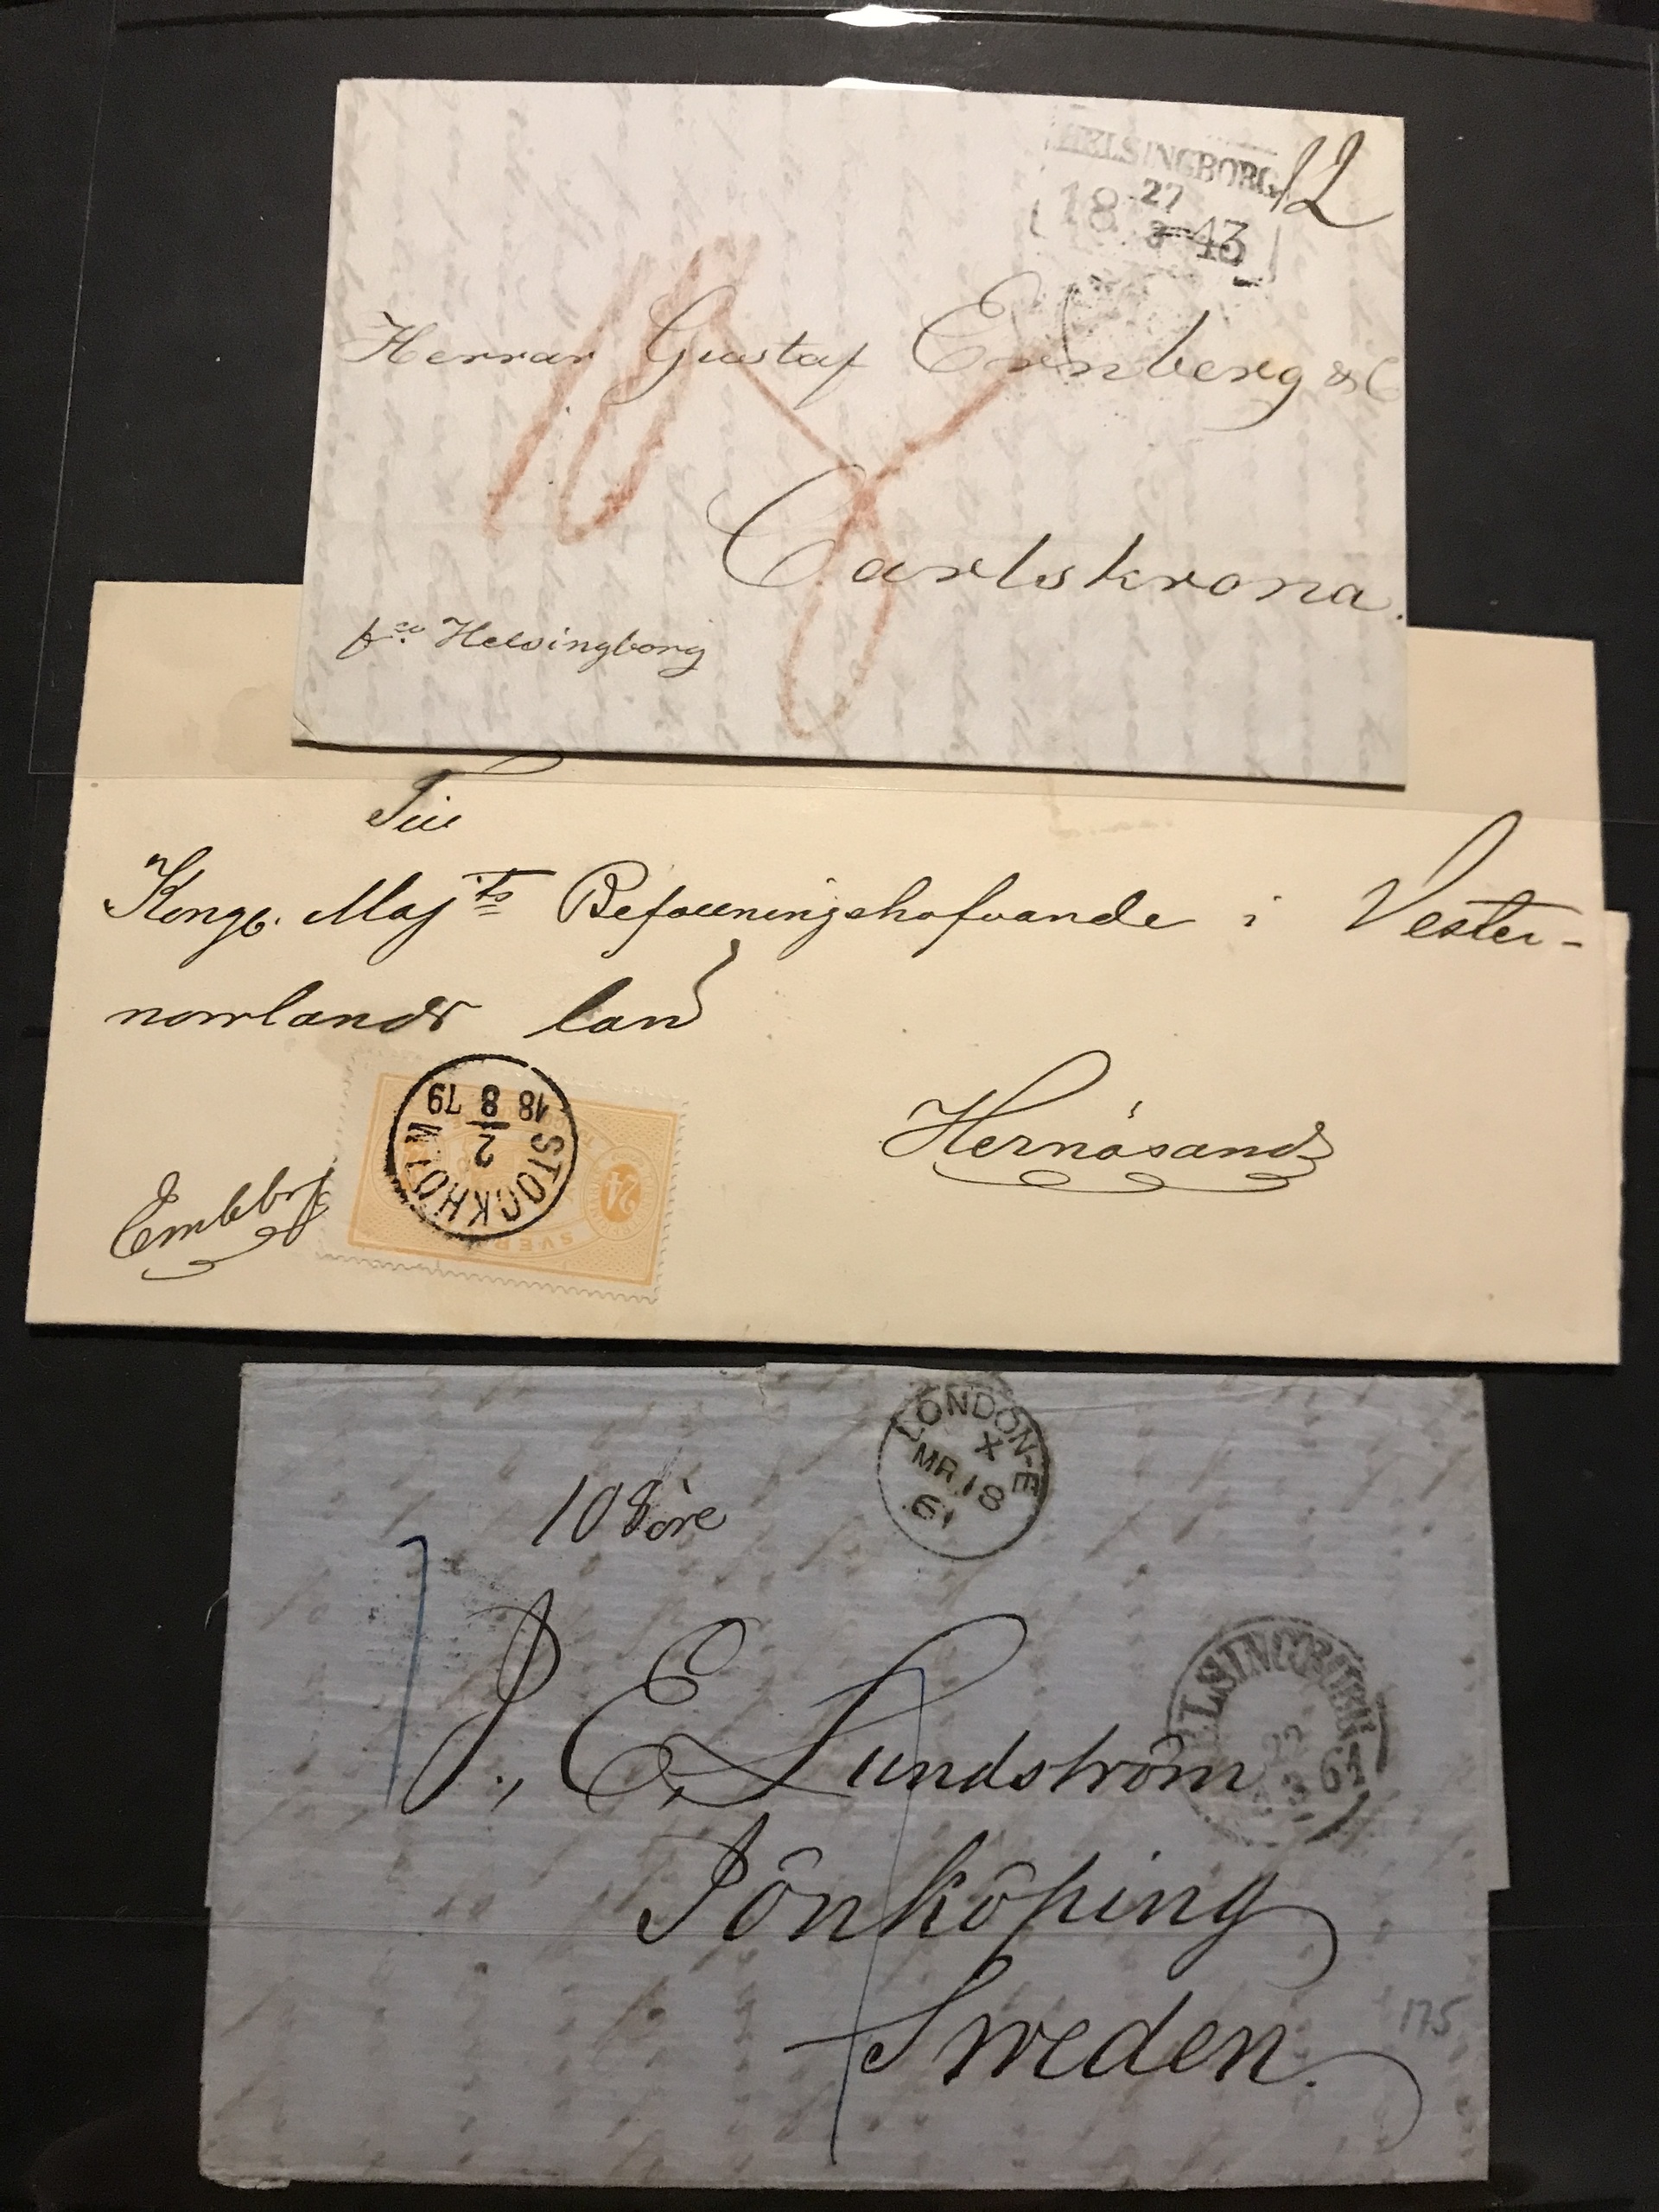 HELSINGBORG
27
18 43
3
12
Herrar Gustaf Ernberg & C
Carlskrona.
fco Helsingborg
Till
Kongl. Majts Befallningshafvande i Vester-
norrlands län
Hernösand
Embbrf
STOCKHOLM
2
18 8 79
24
SVER
LONDON-E
X
MR 18
61
108 öre
J. E. Lundström
Jönköping
Sweden.
ELSINGBORG
22
3
61
175